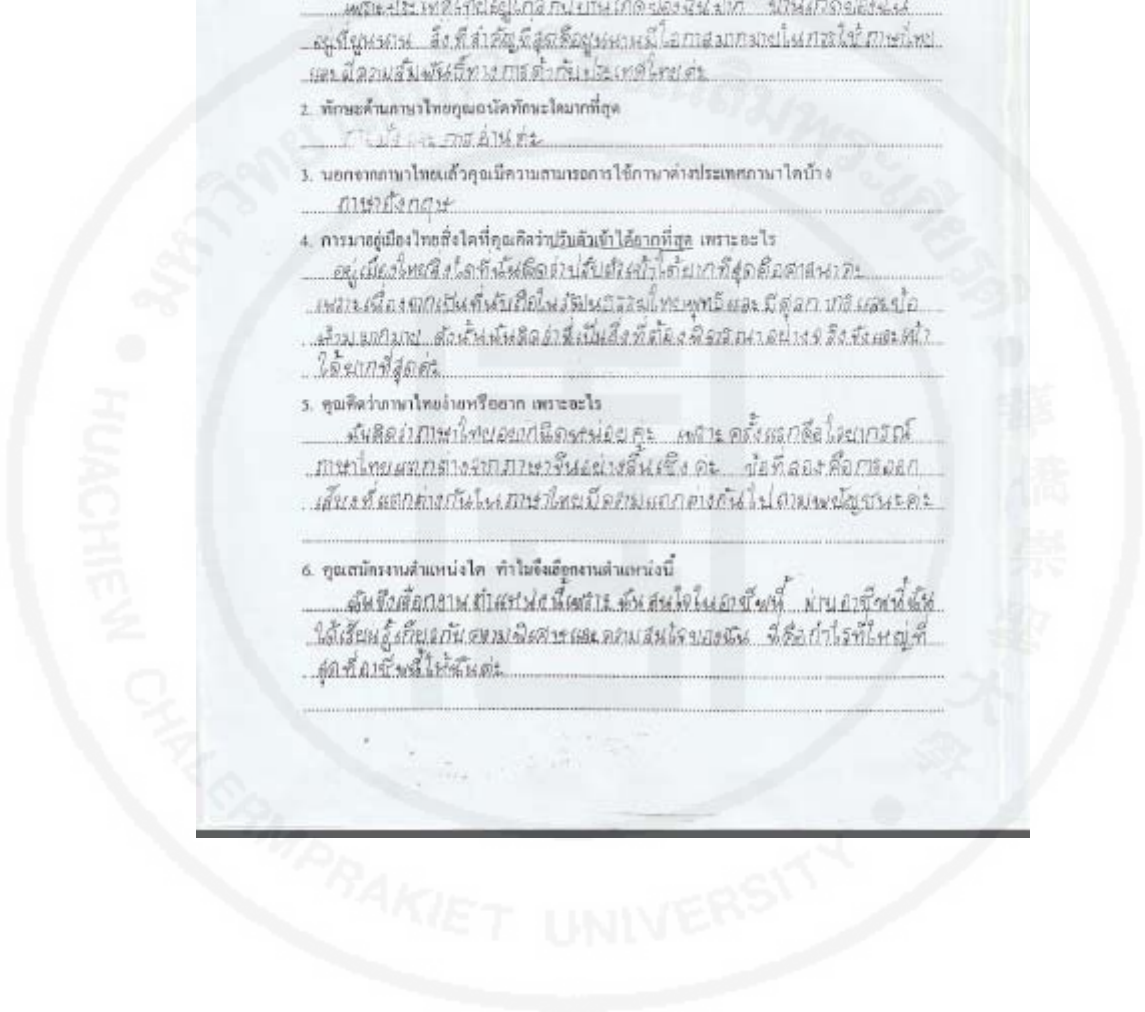 เพราะประเทศไทยอยู่ใกล้กับบ้านเกิดของฉันมาก บ้านเกิดของฉัน
อยู่ที่ยูนนาน สิ่งที่สำคัญที่สุดคือยูนนานมีโอกาสมากมายในการใช้ภาษาไทย
และมีความสัมพันธ์ทางการค้ากับประเทศไทยค่ะ
2. ทักษะด้านภาษาไทยคุณถนัดทักษะใดมากที่สุด
การอ่านค่ะ
3. นอกจากภาษาไทยแล้วคุณมีความสามารถการใช้ภาษาต่างประเทศภาษาใดบ้าง
ภาษาอังกฤษ
4. การมาอยู่เมืองไทยสิ่งใดที่คุณคิดว่าปรับตัวเข้าได้ยากที่สุด เพราะอะไร
อยู่เมืองไทยสิ่งใดที่ฉันคิดว่าปรับตัวเข้าได้ยากที่สุดคือศาสนาคะ
เพราะเนื่องจากเป็นที่นับถือในวัฒนธรรมไทยพุทธและมี
ห้ามมากมาย ดังนั้นฉันคิดว่านี่เป็นสิ่งที่ต้องพิจารณาอย่างจริงจังและ
ได้ยากที่สุดค่ะ
5. คุณคิดว่าภาษาไทยง่ายหรือยาก เพราะอะไร
ฉันคิดว่าภาษาไทยยากนิดหน่อยคะ เพราะครั้งแรกคือไวยากรณ์
ภาษาไทยแตกต่างจากภาษาจีนอย่างสิ้นเชิงคะ ข้อที่สองคือการออก
เสียงที่แตกต่างกันในภาษาไทยมีความแตกต่างกันไปตามพยัญชนะค่ะ
6. คุณสมัครงานตำแหน่งใด ทำไมจึงเลือกงานตำแหน่งนี้
ฉันจึงเลือกงานตำแหน่งนี้เพราะ ฉันสนใจในอาชีพนี้ ผ่านอาชีพที่ฉัน
ได้เรียนรู้เกี่ยวกับความและความสนใจของฉัน นี่คือกำไรที่ใหญ่ที่
สุดที่อาชีพนี้ให้ฉันค่ะ
HUACHIEW CHALERMPRAKIET UNIVERSITY